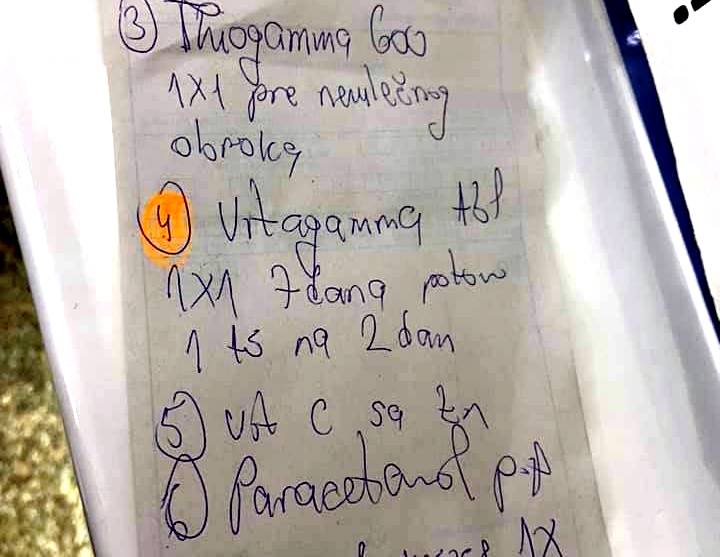 ③ Thiogamma 600
1X1 pre nemlečnog
obroka
④ Vitagamma tbl
1X1 7 dana potom
1 tb na 2 dan
⑤ vit C sa Zn
⑥ Paracetamol p.p
1X